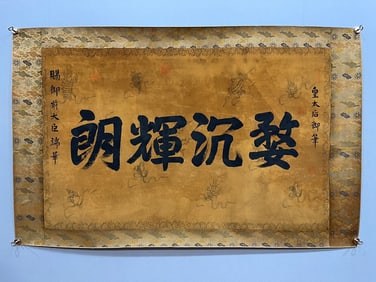 皇太后御筆
婺沉輝朗
賜御前大臣瑞華